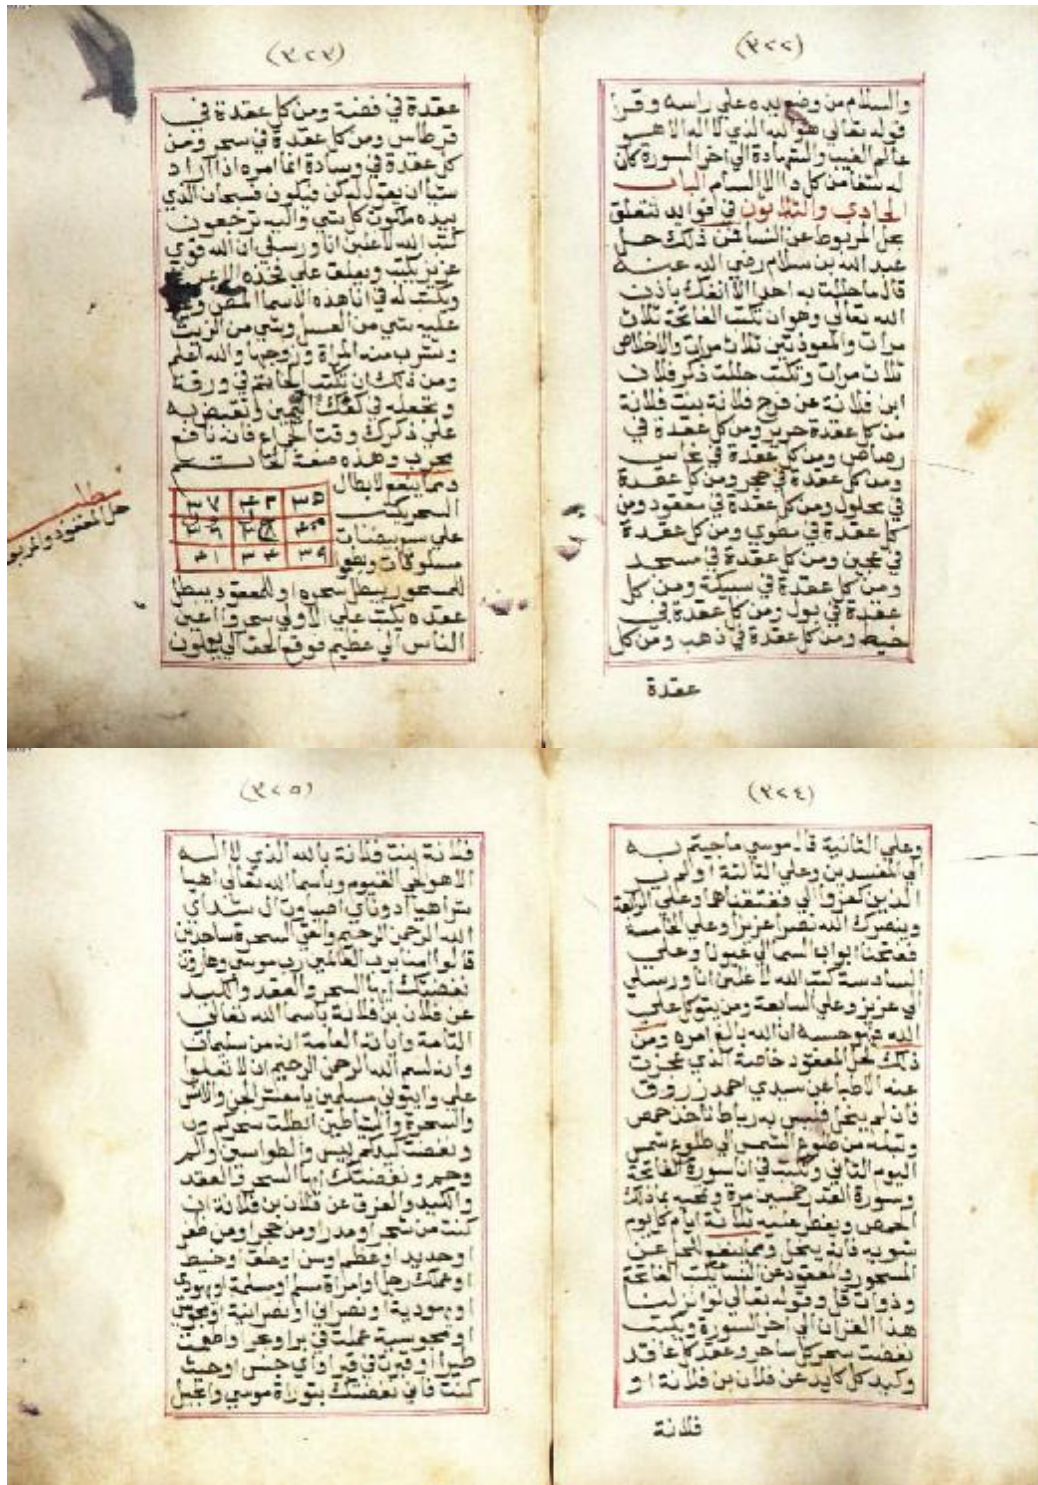 (٣٢٢)
والسلام من وضع يده علي راسه وقرا
قوله تعالي هو الله الذي لا اله الا هو
عالم الغيب والشهادة الي اخر السورة كان
له شفا من كل دا الا السام الباب
الحادي والثلاثون في فوايد تتعلق
بحل المربوط عن النسا فمن ذلك حل
عبد الله بن سلام رضي الله عنه
قال ما حللت به احدا الا انفك باذن
الله تعالي وهو ان تكتب الفاتحة ثلاث
مرات والمعوذتين ثلاث مرات والاخلاص
ثلاث مرات وتكتب حللت ذكر فلان
ابن فلانة عن فرج فلانة بنت فلانة
من كل عقدة حرير ومن كل عقدة في
رصاص ومن كل عقدة في نحاس
ومن كل عقدة في حجر ومن كل عقدة
في محلول ومن كل عقدة في معقود ومن
كل عقدة في مطوي ومن كل عقدة
في عجين ومن كل عقدة في مسجد
ومن كل عقدة في سبيكة ومن كل
عقدة في بول ومن كل عقدة في
خيط ومن كل عقدة في ذهب ومن كل
عقدة
(٣٢٣)
عقدة في فضة ومن كل عقدة في
قرطاس ومن كل عقدة في سحر ومن
كل عقدة في وسادة انما امره اذا اراد
شيا ان يقول له كن فيكون فسبحان الذي
بيده ملكوت كل شي واليه ترجعون
كتب الله لاغلبن انا ورسلي ان الله قوي
عزيز يكتب ويعلق علي فخذه الايمن
ويكتب له في انا هذه الاسما
عليه شي من العسل وشي من الزيت
وتشرب منه المراة وزوجها والله اعلم
ومن ذلك ان تكتب الخاتم في ورقة
وتجعله في كفك اليمين وتقبض به
علي ذكرك وقت الجماع فانه نافع
مجرب وهذه صفة الخاتم
ومما ينفع لابطال
السحر يكتب
علي سبع بيضات
مسلوقات
للمسحور يبطل سحره او للمعقود يبطل
عقده يكتب علي الاولي سحروا اعين
الناس الي عظيم فوقع الحق الي يعملون
٣٥ ٤٢ ٣٧
٣٩ ٣٤ ٤١
حل المعقود والمربوط
(٣٢٤)
وعلي الثانية قال موسي ما جيتم به
الي المفسدين وعلي الثالثة اولم ير
الذين كفروا الي ففتقناهما وعلي الرابعة
وينصرك الله نصرا عزيزا وعلي الخامسة
ففتحنا ابواب السما الي عيونا وعلي
السادسة كتب الله لاغلبن انا ورسلي
الي عزيز وعلي السابعة ومن يتوكل علي
الله فهو حسبه ان الله بالغ امره ومن
ذلك لحل المعقود خاصة الذي عجزت
عنه الاطبا عن سيدي احمد زروق
فان لم ينحل فليس به رباط تاخذ حمص
وتبله من طلوع الشمس الي طلوع شمس
اليوم الثاني وتكتب في انا سورة الفاتحة
وسورة القدر خمسين مرة وتمحيه بما ذلك
الحمص ويفطر عليه ثلاثة ايام كل يوم
شويه فانه ينحل ومما ينفع لحل عن
المسحور والمعقود عن النسا يكتب الفاتحة
وذوات قل وقوله تعالي لو انزلنا
هذا القران الي اخر السورة ويكتب
نقضت سحر كل ساحر وعقد كل عاقد
وكيد كل كايد عن فلان بن فلانة او
فلانة
(٣٢٥)
فلانة بنت فلانة بالله الذي لا اله
الا هو الحي القيوم وباسما الله تعالي اهيا
شراهيا ادوناي اصباوت ال شداي
الله الرحمن الرحيم والقي السحرة ساجدين
قالوا امنا برب العالمين رب موسي وهارون
نقضتك ايها السحر والعقد والكيد
عن فلان بن فلانة باسما الله تعالي
التامة واياته العامة انه من سليمان
وانه بسم الله الرحمن الرحيم ان لا تعلوا
علي وايتوني مسلمين يا معشر الجن والانس
والسحرة والشياطين ابطلت سحركم
ونقضت كيدكم بيس والطواسين والم
وحم ونقضتك ايها السحر والعقد
والكيد والعزق عن فلان بن فلانة ان
كنت من شجر او مدر او من حجر او من ظفر
او حديد او عظم وسن او حلق او خيط
او عملك رجل او امراة مسلم او مسلمة او يهودي
او يهودية او نصراني او نصرانية او مجوسي
او مجوسية عملت في بر او بحر او اطعمت
طيرا او قبرت في قبر او اي جنس او حيث
كنت فاني نقضتك بتوراة موسي وانجيل